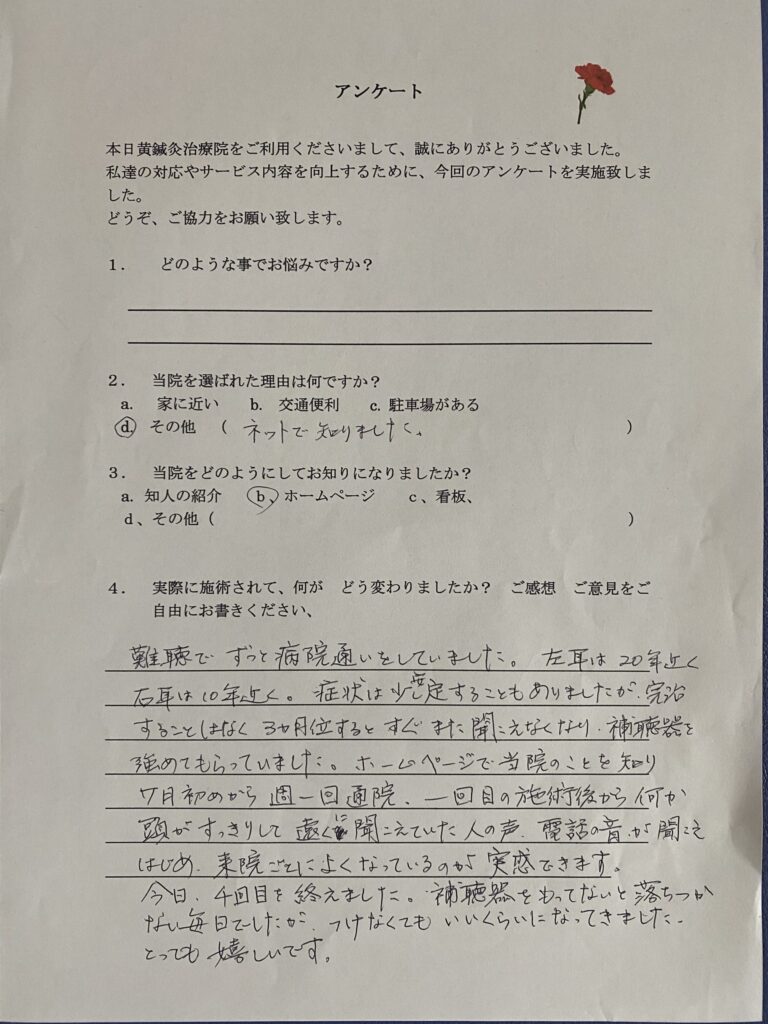 アンケート
本日黄鍼灸治療院をご利用くださいまして、誠にありがとうございました。
私達の対応やサービス内容を向上するために、今回のアンケートを実施致しま
した。
どうぞ、ご協力をお願い致します。
1.　どのような事でお悩みですか？
2.　当院を選ばれた理由は何ですか？
a.　家に近い　b.　交通便利　c. 駐車場がある
d. その他　（ ネットで知りました。 ）
3.　当院をどのようにしてお知りになりましたか？
a. 知人の紹介　b. ホームページ　c、看板、
d、その他（　）
4.　実際に施術されて、何が　どう変わりましたか？　ご感想　ご意見をご
自由にお書きください、
難聴で ずっと病院通いをしていました。 左耳は20年近く
右耳は10年近く。 症状は少し安定することもありましたが、完治
することはなく 3カ月位すると すぐ また 聞こえなくなり、補聴器を
強めてもらっていました。ホームページで当院のことを知り
7月初めから 週一回通院、一回目の施術後から 何か
頭がすっきりして 遠くに聞こえていた人の声、電話の音が聞こえ
はじめ、来院ごとによくなっているのが 実感できます。
今日、4回目を終えました。補聴器をもってないと落ちつか
ない毎日でしたが、つけなくても いいくらいになってきました。
とっても 嬉しいです。